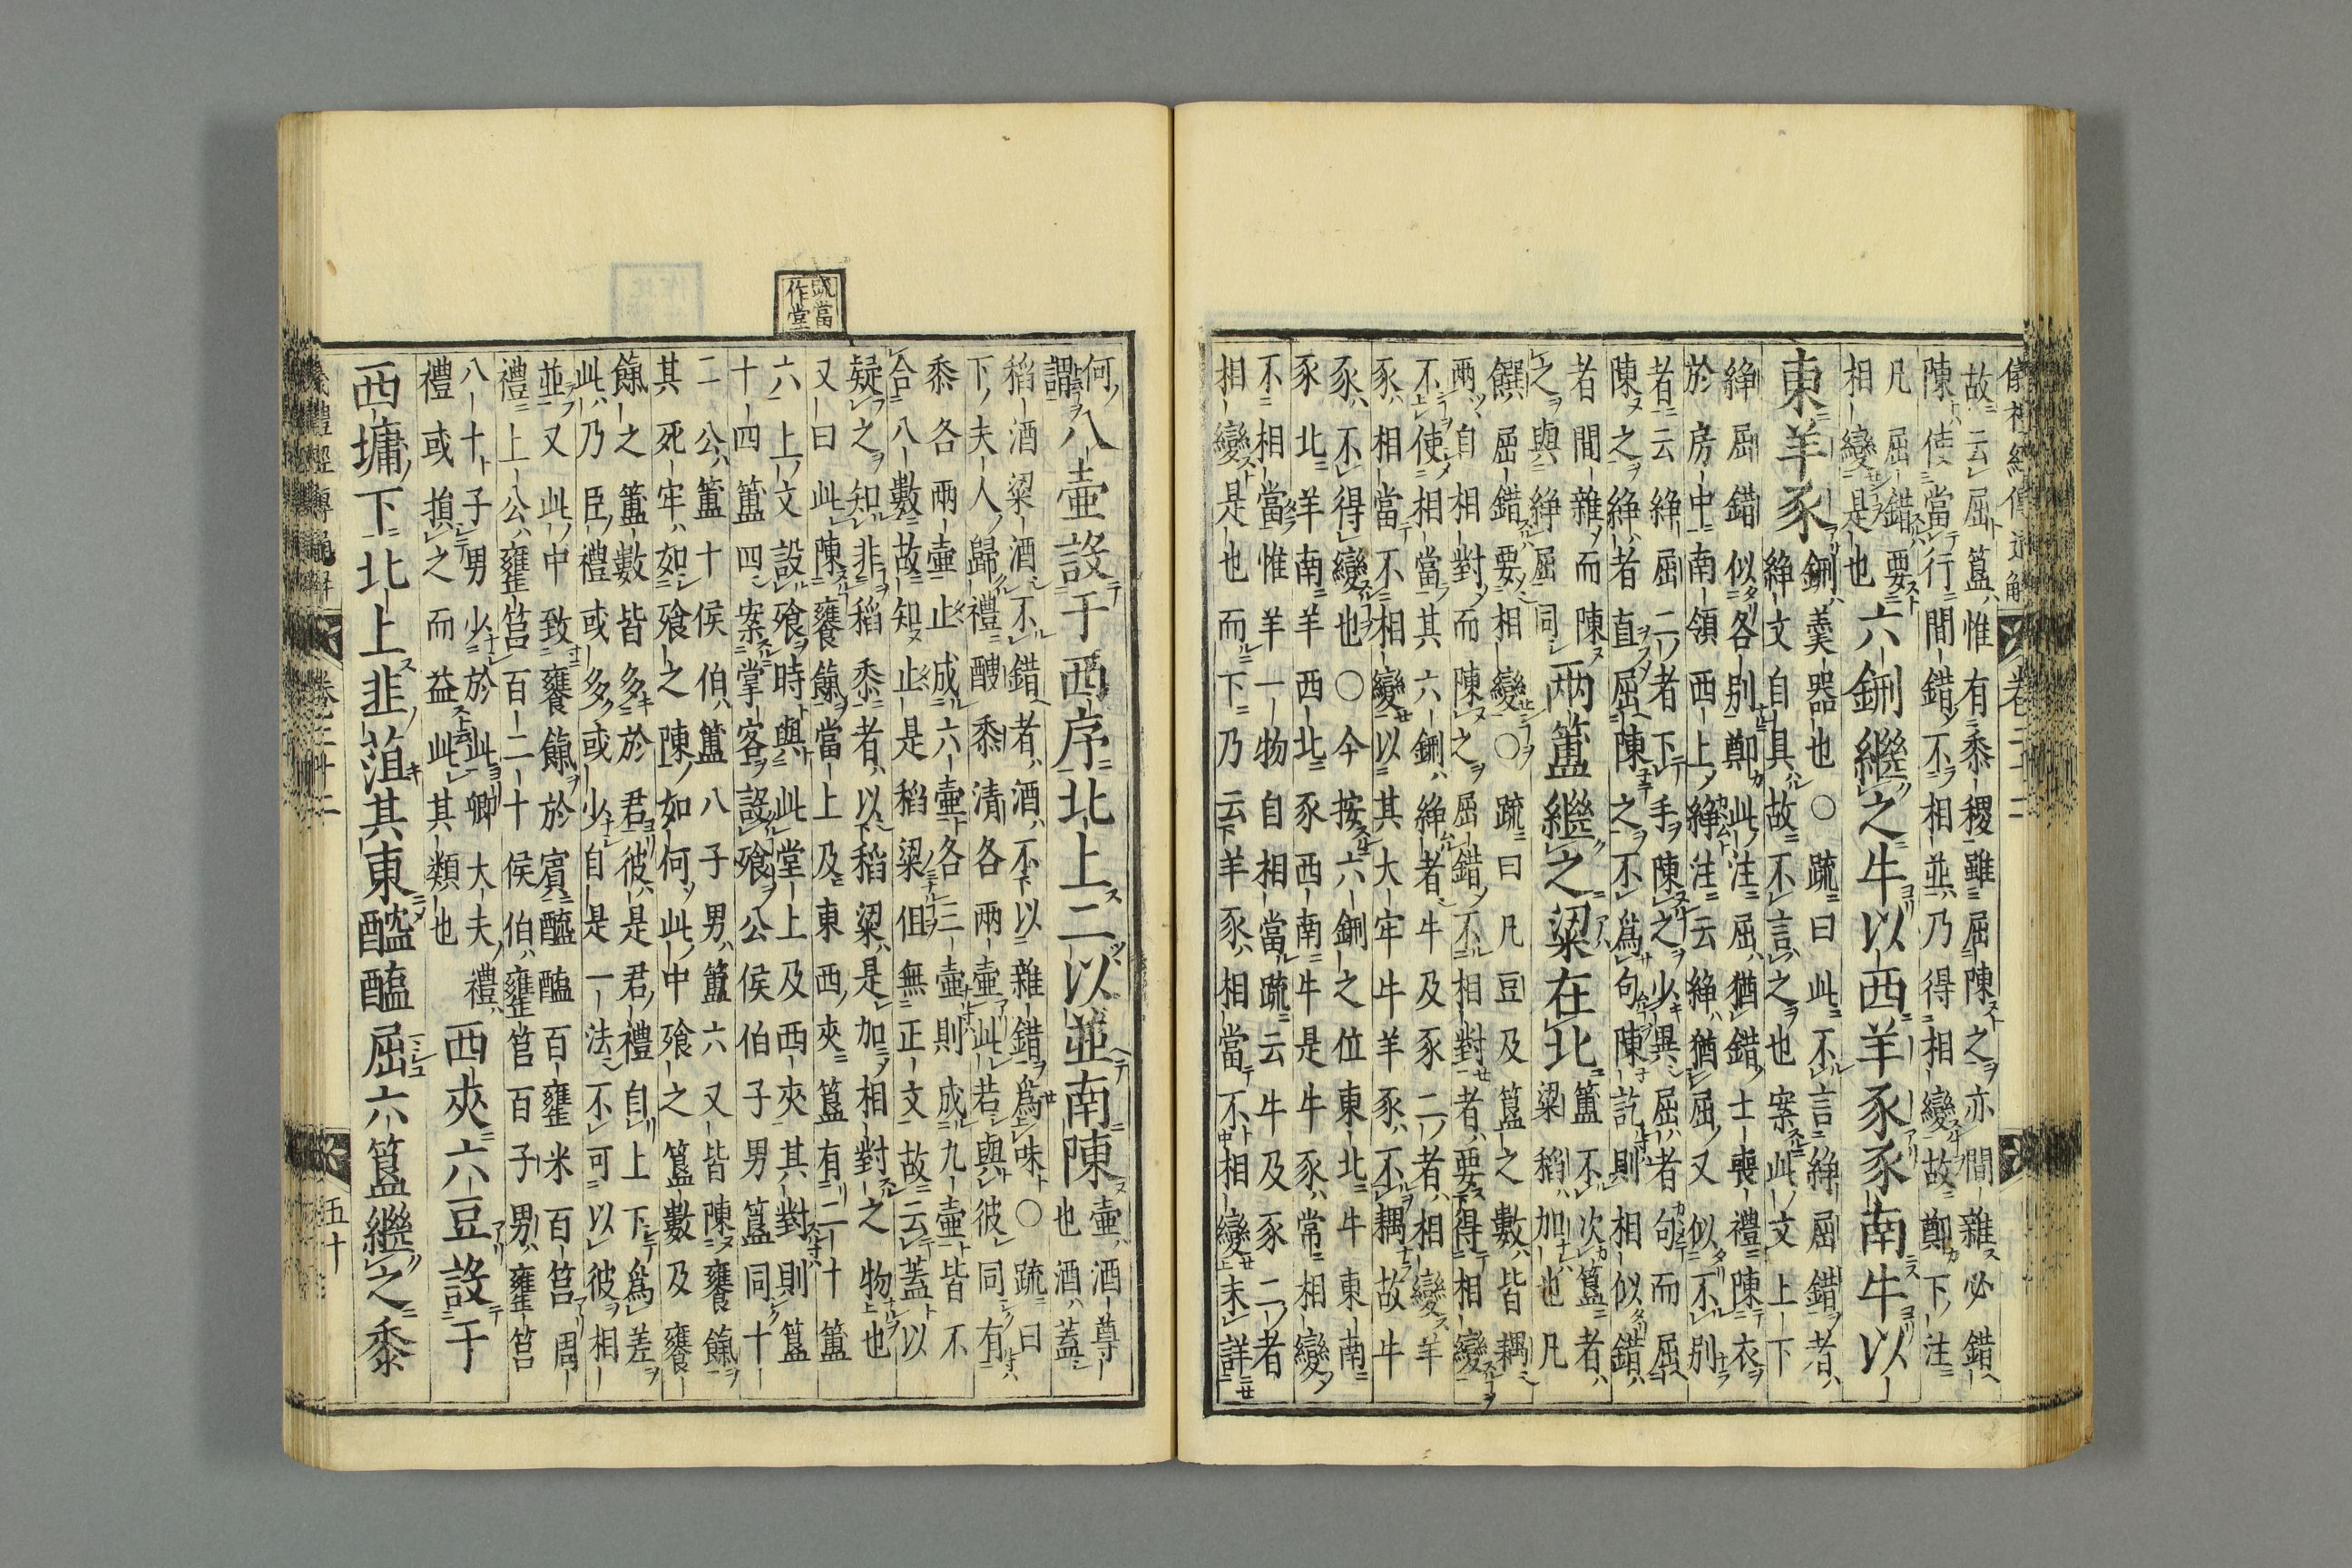 故云屈簋惟有黍稷雖屈陳之亦間雜必錯
陳使當行間錯不相並乃得相變故鄭下注
凡屈錯要
相變是也
六鉶繼之牛以西羊豕豕南牛以
東羊豕
鉶羹器也○疏曰此不言綪屈錯者
綪文自具故不言之也案此文上下
綪屈錯似各別鄭此注屈猶錯士喪禮陳衣
於房中南領西上綪注云綪猶屈又似不別
者云綪屈二者下手陳之少異屈者句而屈
陳之綪者直屈陳之不為句陳訖則相似錯
者間雜而陳
之與綪屈同
兩簠繼之粱在北
簠不次簋者
粱稻加也凡
饌屈錯要相變○疏曰凡豆及簋之數皆耦
兩自相對而陳之屈錯不相對者要得相變
不使相當其六鉶綪者牛及豕二者相變羊
豕相當不相變以其大牢牛羊豕不耦故牛
豕不得變也○今按六鉶之位東北牛東南
豕北羊南羊西北豕西南牛是牛豕常相變
不相當惟羊一物自相當疏云牛及豕二者
相變是也而下乃云羊豕相當不相變未詳
何
謂
八壺設于西序北上二以並南陳
壺酒尊
也酒蓋
稻酒粱酒不錯者酒不以雜錯為味○疏曰
下夫人歸禮醙黍清各兩壺此若與彼同有
黍各兩壺止成六壺各三壺則成九壺皆不
合八數故知止是稻粱但無正文故云蓋以
疑之知非稻黍者以稻粱是加相對之物也
又曰此陳饔餼當上及東西夾簋有二十簠
當
作堂
六上文設飧時與此堂上及西夾其對則簋
十四簠四案掌客設飧公侯伯子男簋同十
二公簠十侯伯簠八子男簠六又皆陳饔餼
其死牢如飧之陳如何此中飧之簋數及饔
餼之簠數皆多於君彼是君禮自上下為差
此乃臣禮或多或少自是一法不可以彼相
並又此中致饔餼於賓醯醢百罋米百筥周
禮上公罋筥百二十侯伯罋筥百子男罋筥
八十子男少於此卿大夫禮
禮或損之而益此其類也
西夾六豆設于
西墉下北上韭菹其東醓醢屈六簋繼之黍
五十